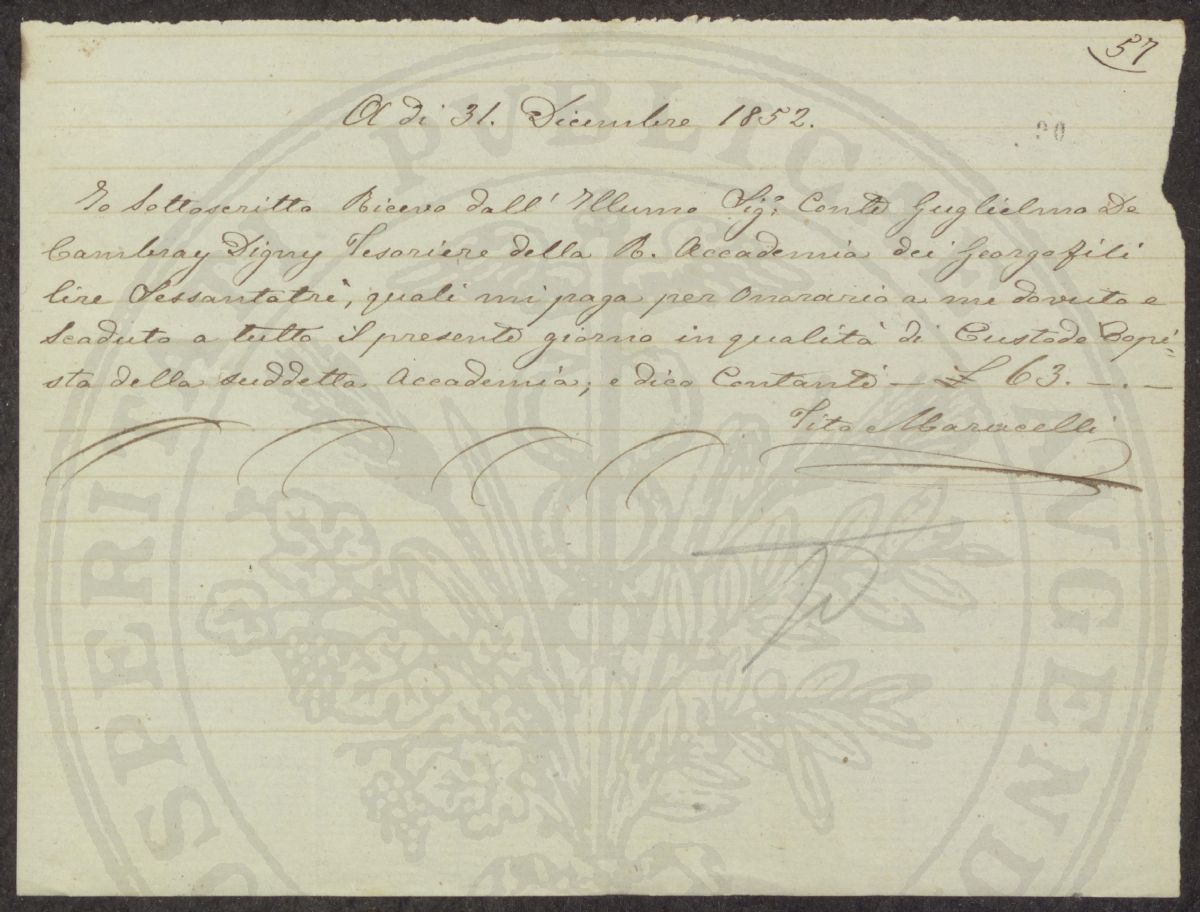 57
A di 31. Dicembre 1852.
Io Sottoscritto Ricevo dall' Illumo Sigr. Conte Guglielmo De
Cambray Digny Tesoriere della R. Accademia dei Georgofili
lire Sessantatrè, quali mi paga per Onorario a me dovuto e
Scaduto a tutto il presente giorno in qualità di Custode Copi=
sta della suddetta Accademia, e dico Contanti — £ 63. —.—
Tito
PROSPERITATI PUBLICAE AUGENDAE